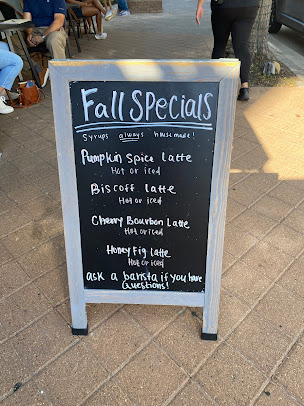 Fall Specials
Syrups always housemade!
Pumpkin Spice Latte
Hot or iced
Biscoff latte
Hot or iced
Cherry Bourbon Latte
Hot or iced
Honey Fig latte
Hot or iced
ask a barista if you have
Questions!